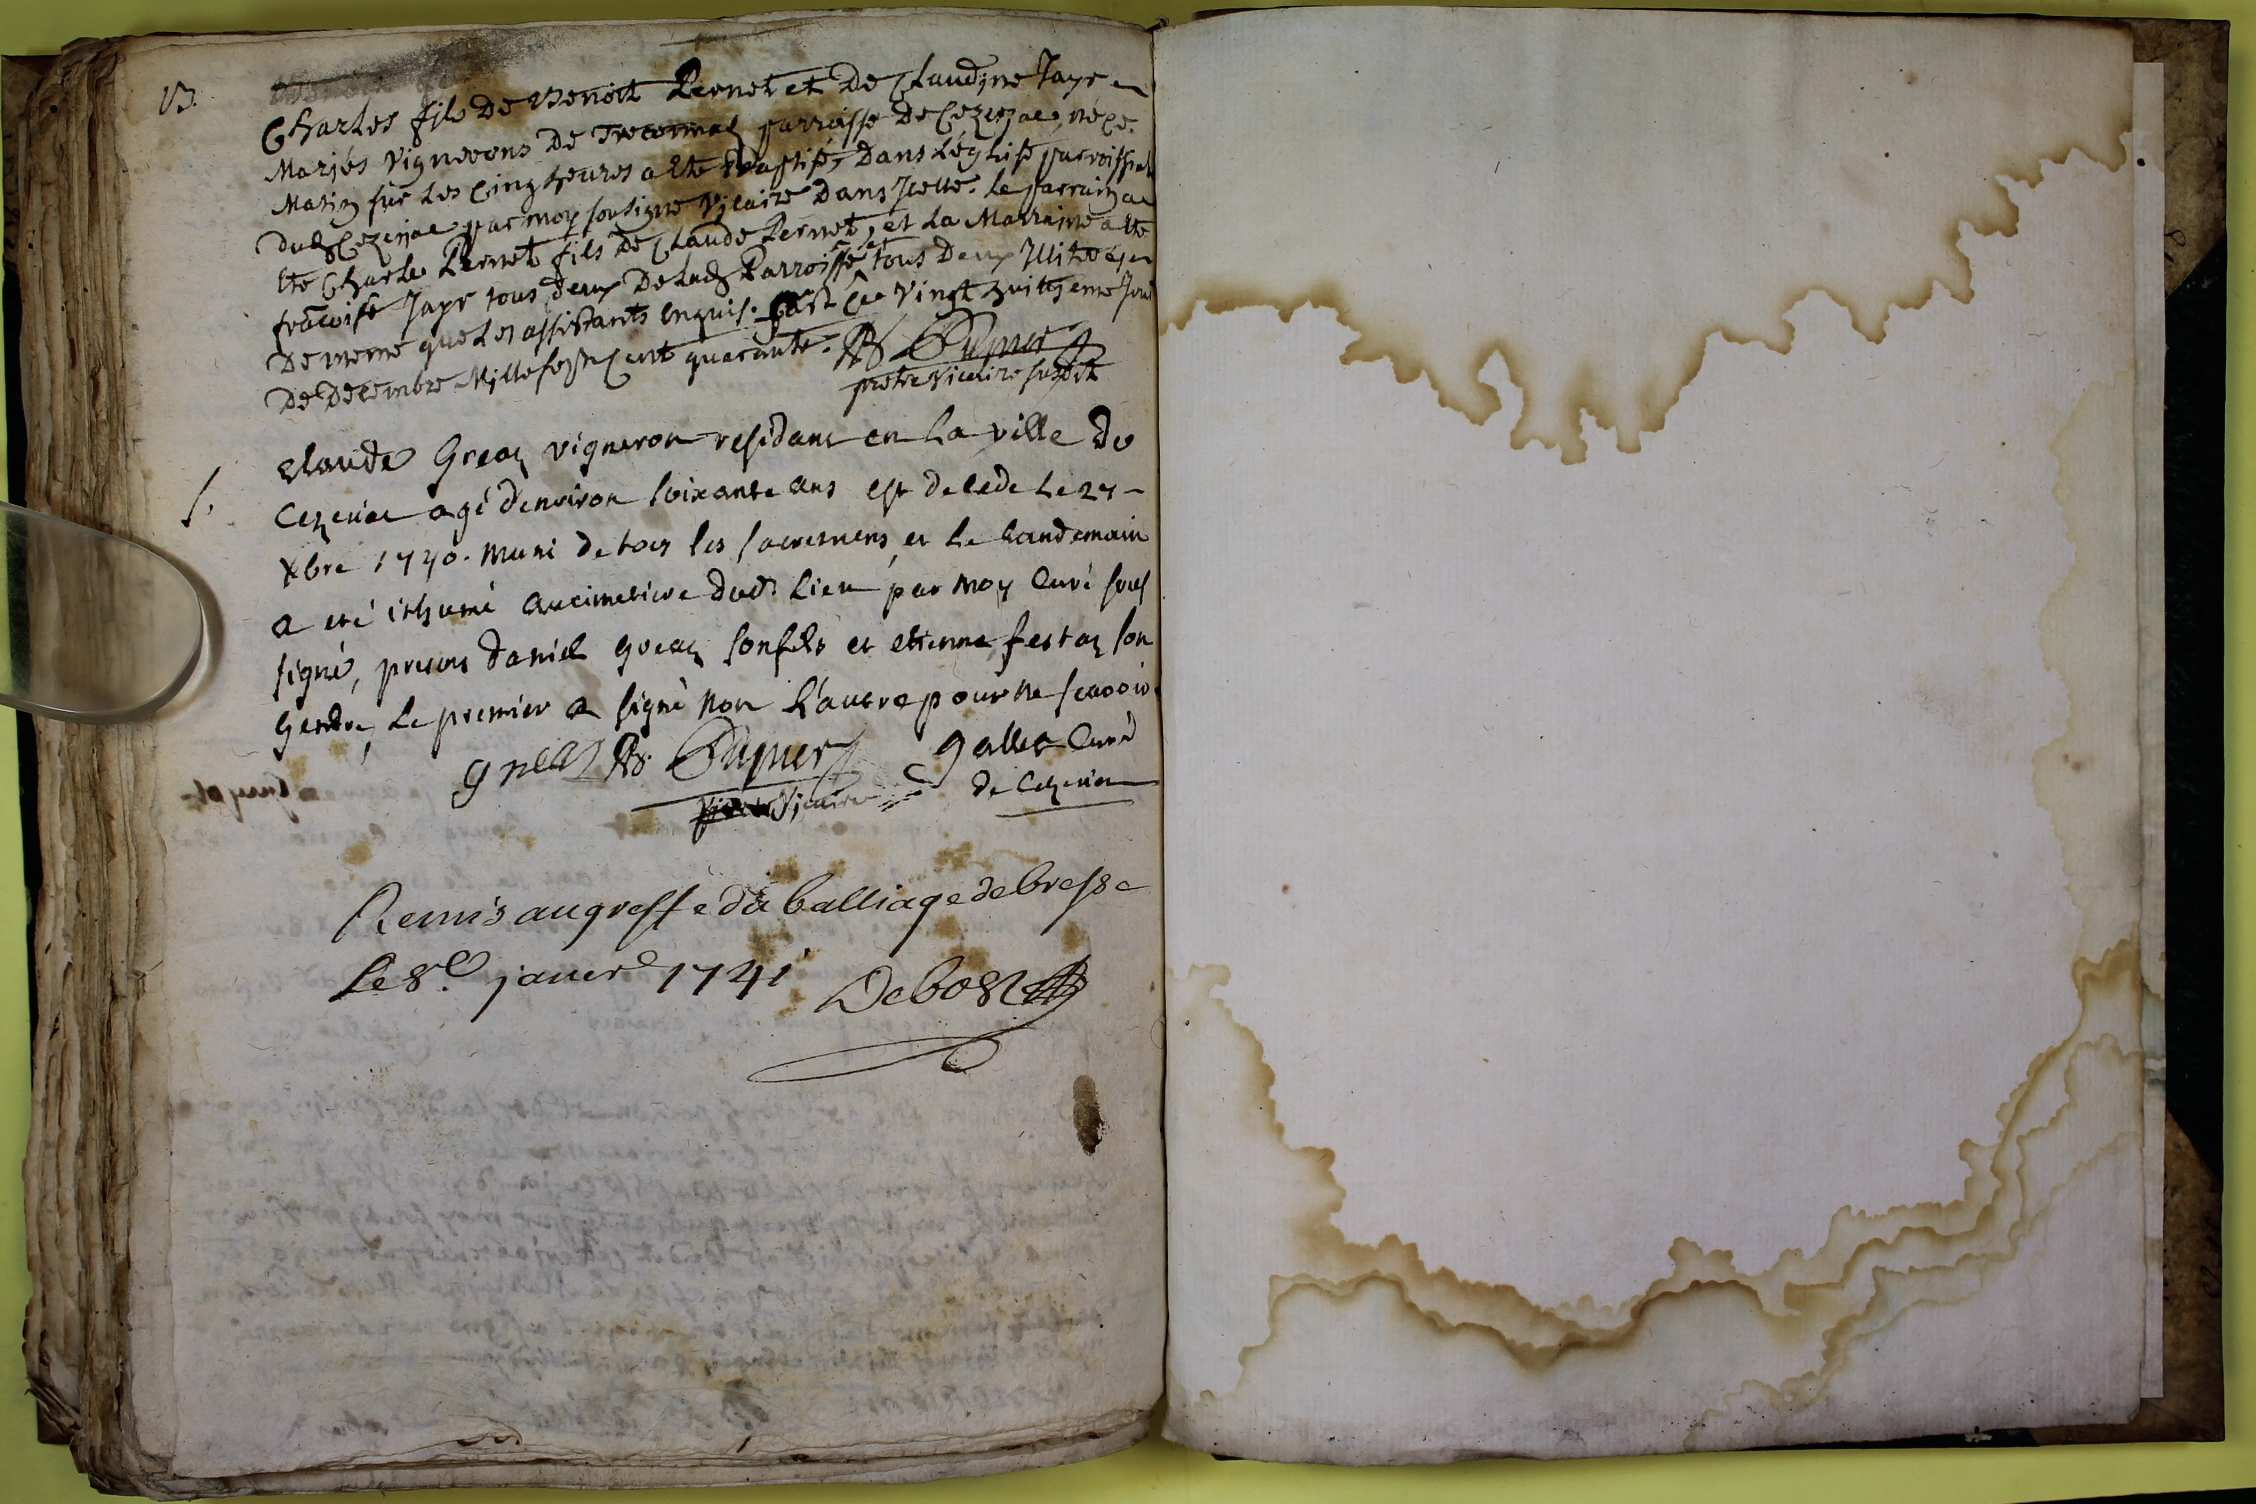 B.
Charles fils De Benoit Pernet et De Claudine Jayr
Mariés Vignerons De parroisse De Cezeriac, né ce
Matin sur Les Cinq heures a Ete Baptisé, Dans L'église parroissial
dud Cezeriac par moy sousigné Vicaire Dans Jcelle. Le parrain a
Ete Charle Pernet fils De Claude Pernet, et La Marraine a Ete
francoise Jayr tous deux De Lad Parroisse et tous Deux
De meme que Les assistants Enquis. fait Ce Vingt huitjeme Jour
De Decembre Mille sept Cent quarante.
pretre Vicaire susdit
S.
Claude Greaz vigneron residant en La ville de
Cezeriac agé d'environ soixante ans est decede Le 27
Xbre 1740. muni de tous les sacremens, et Le Landemain
a eté ithumé au cimetiere dud. Lieu par moy Curé sous
signé, presens daniel greaz son fils et etienne festaz son
gendre, Le premier a signé non L'autre pour ne scavoir
greaz gallet Curé
Vicaire de Cezeriac
Remis au greffe du balliage de bresse
Le 8e. janer 1741 Debost